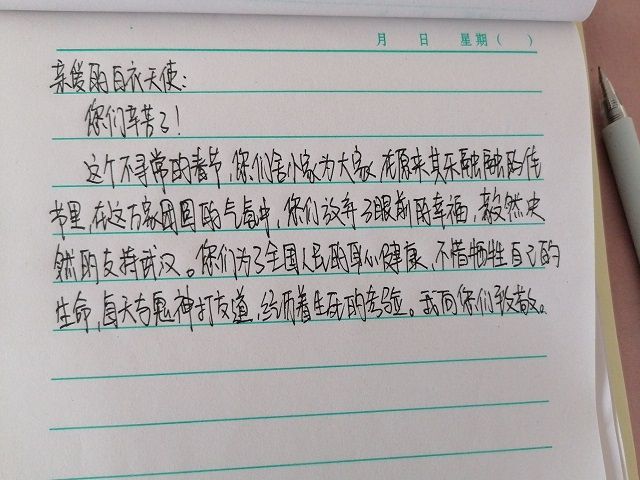 月 日 星期( )
亲爱的白衣天使:
你们辛苦了!
这个不寻常的春节,你们舍小家为大家,在原来其乐融融的佳
节里,在这万家团圆的气氛中,你们放弃了眼前的幸福,毅然决
然的支持武汉。你们为了全国人民的身心健康,不惜牺牲自己的
生命,每天与鬼神打交道,经历着生死的考验。我向你们致敬。